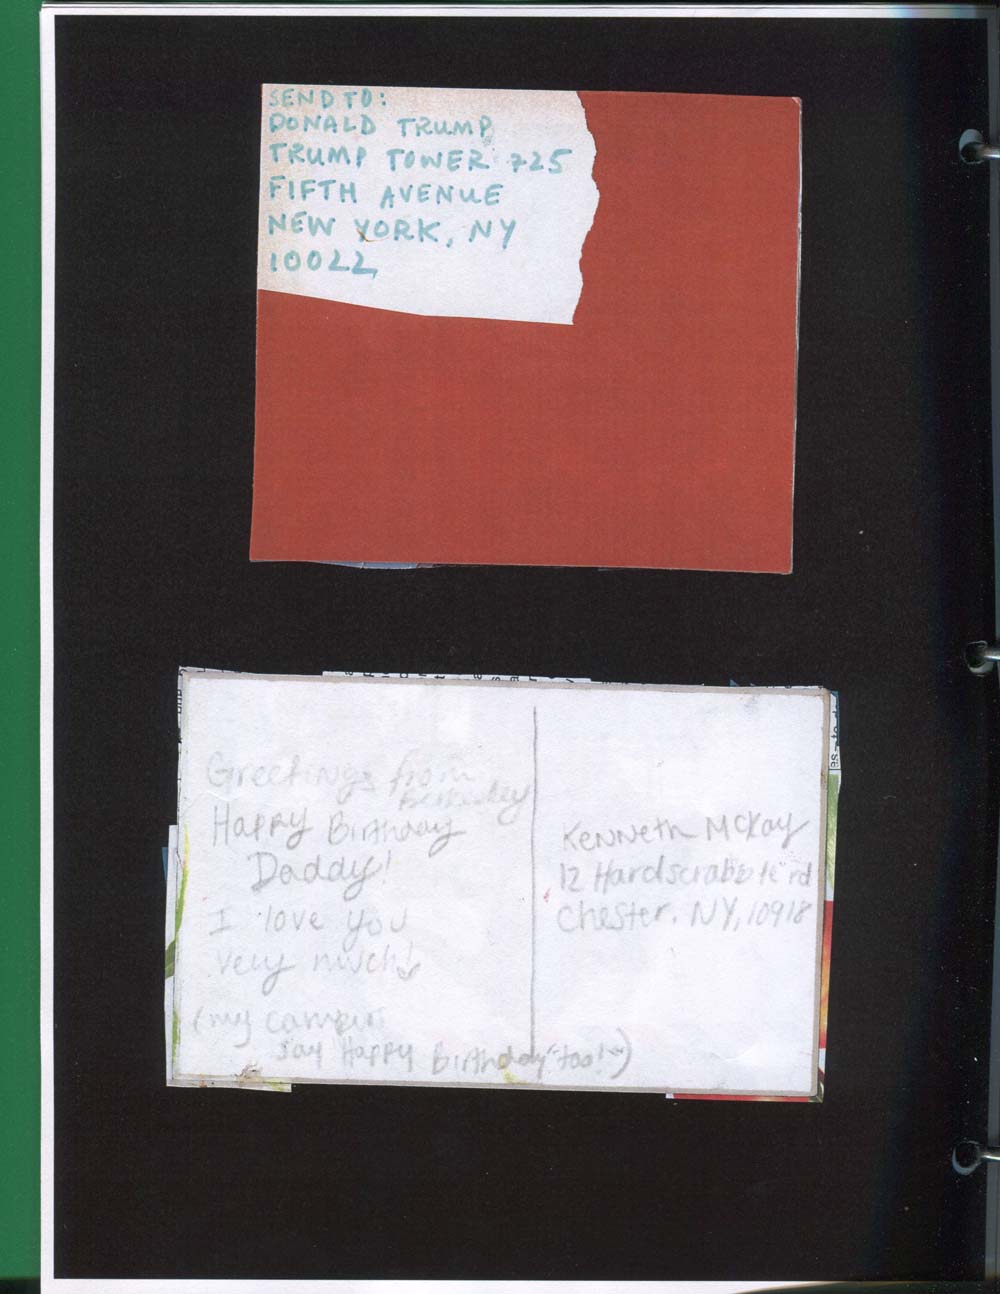 SEND TO:
DONALD TRUMP
TRUMP TOWER 725
FIFTH AVENUE
NEW YORK, NY
10022
Greetings from
Berkeley
Happy Birthday
Daddy!
I love you
very much!
(my
say Happy Birthday too!
Kenneth McKay
12 Hardscrabble rd
Chester. NY, 10918